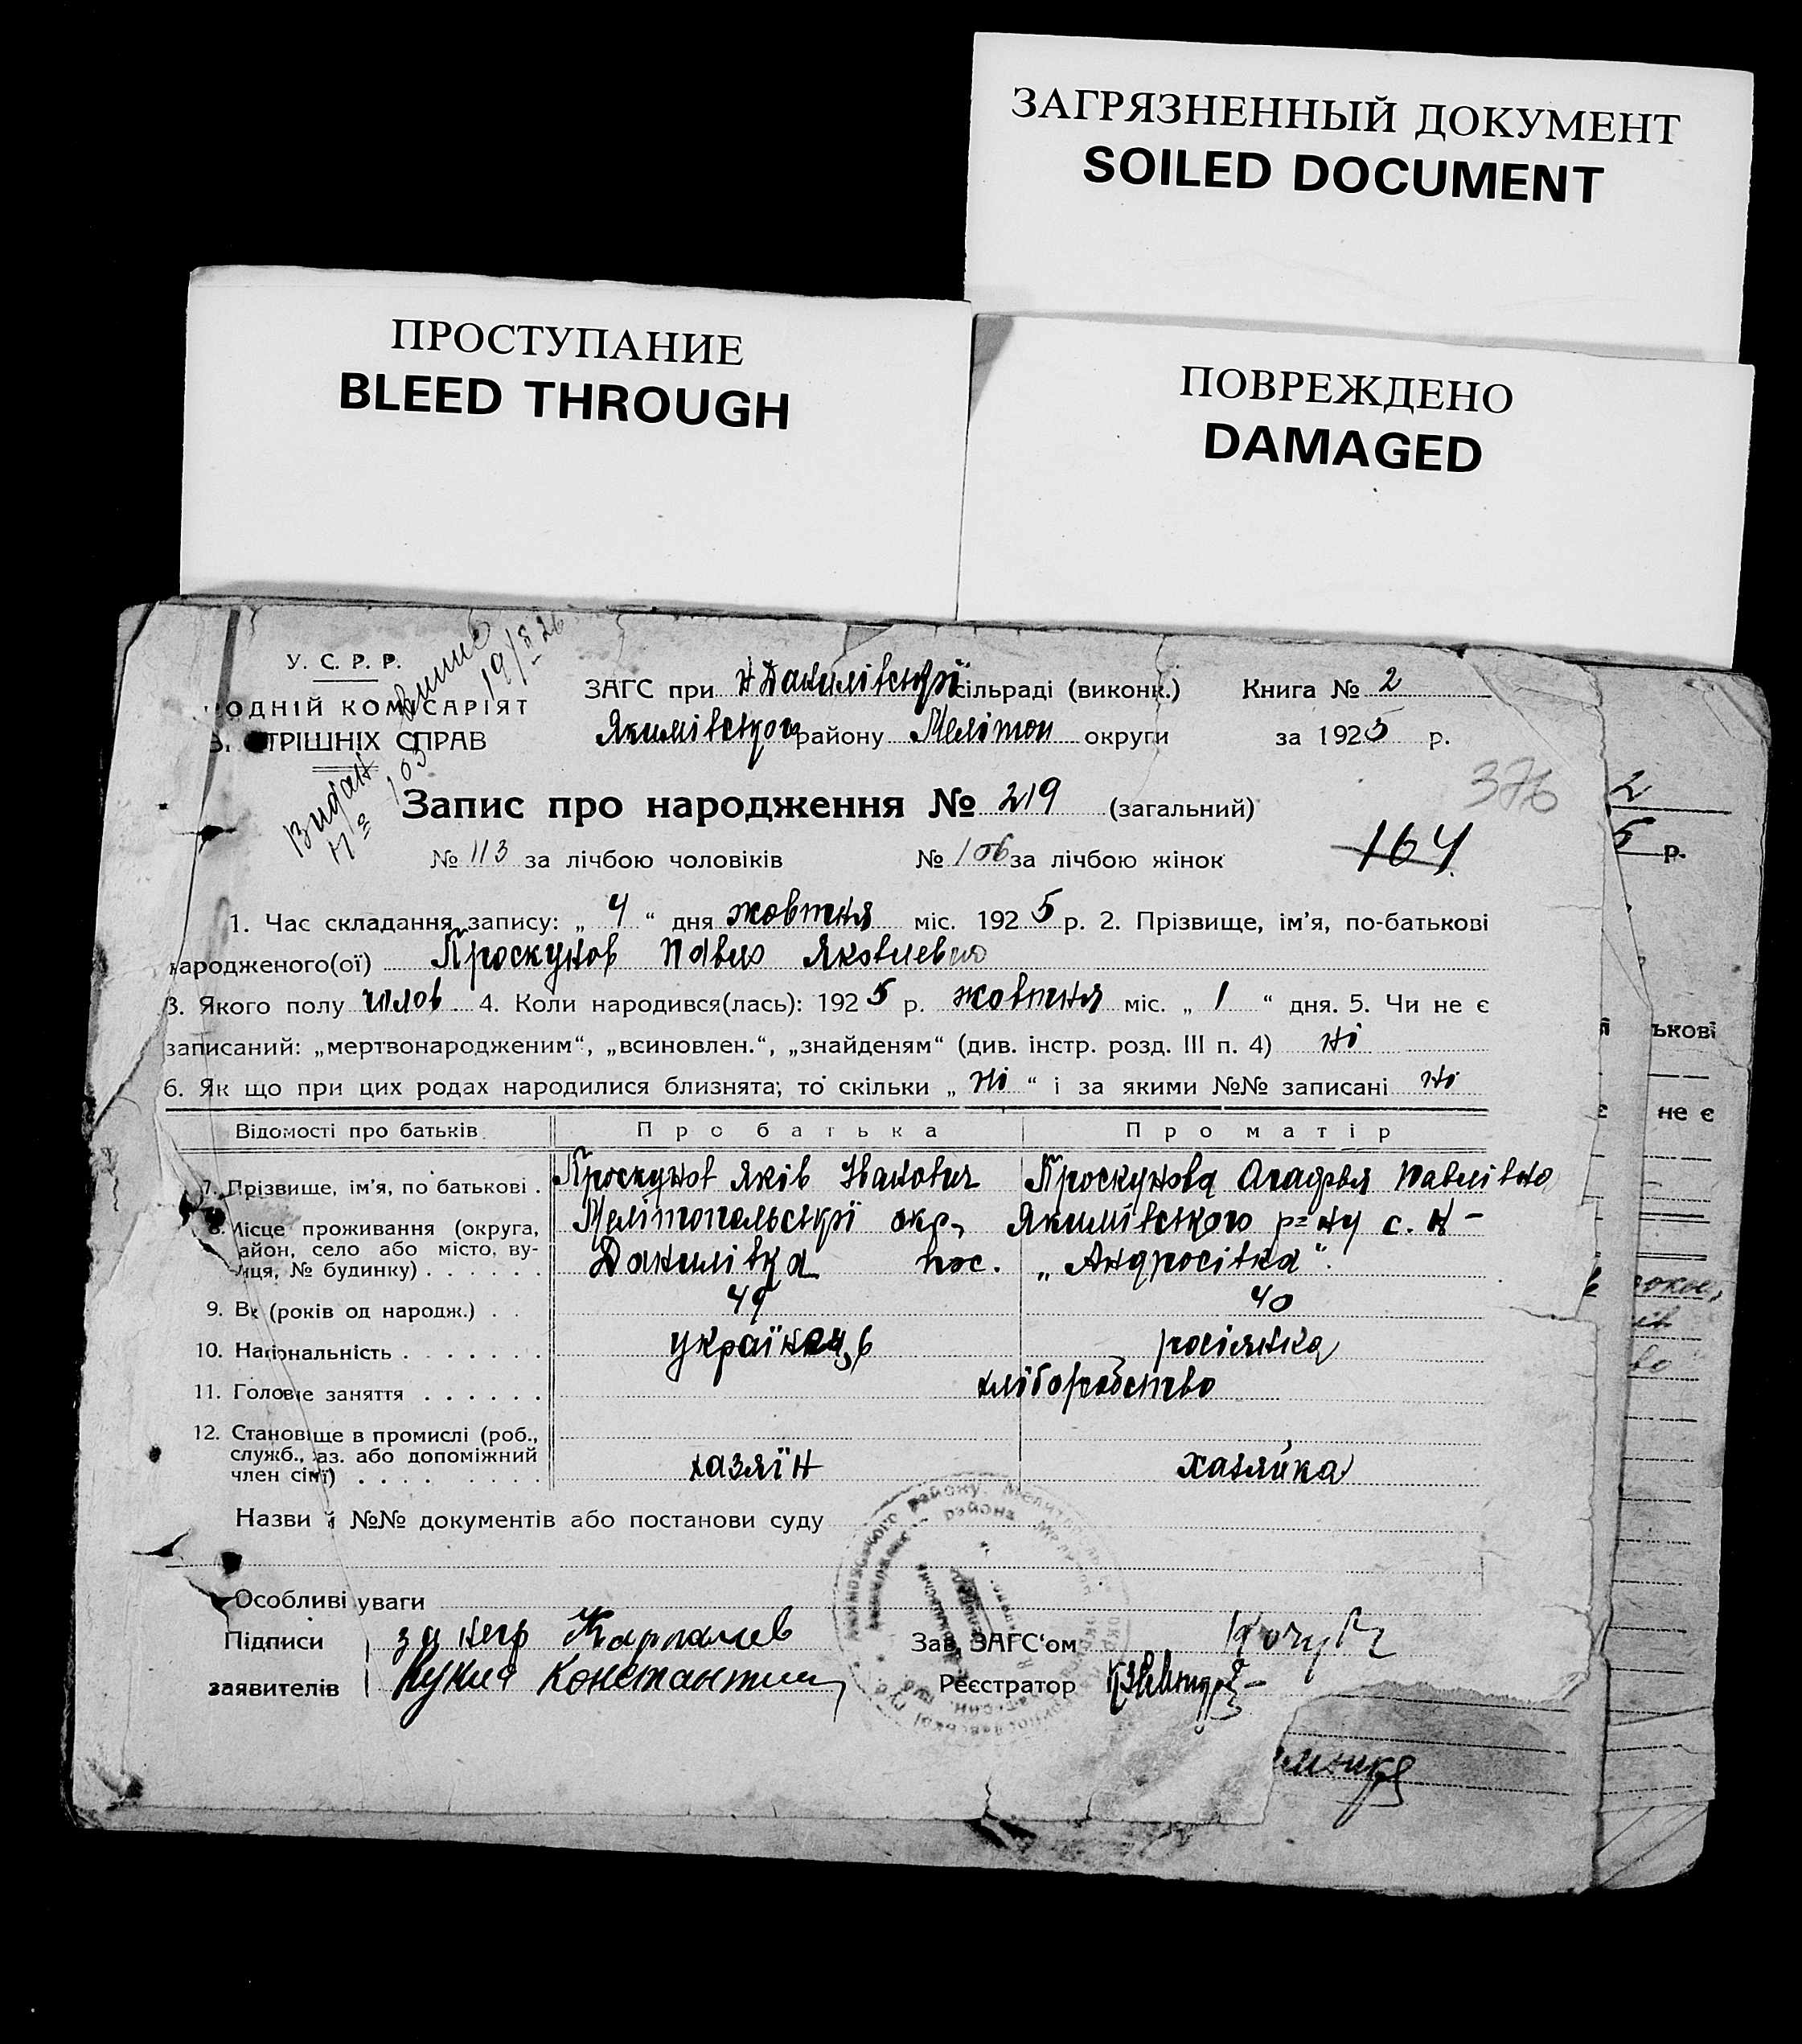 ЗАГРЯЗНЕННЫЙ ДОКУМЕНТ
SOILED DOCUMENT
ПРОСТУПАНИЕ
BLEED THROUGH
ПОВРЕЖДЕНО
DAMAGED
У. С. Р. Р.
ОДНІЙ КОМІСАРІЯТ
ТРІШНІХ СПРАВ
Видан
№ 103
19/8 26
ЗАГС при Н Данилівській сільраді (виконк.) Книга № 2
Якимівського району Мелітоп округи за 1925 р.
376
Запис про народження № 219 (загальний)
164
№ 113 за лічбою чоловіків № 106 за лічбою жінок
1. Час складання запису: „ 4 “ дня жовтня міс. 1925 р. 2. Прізвище, ім’я, по-батькові
народженого(ої) Проскунов Павло Яковлев
3. Якого полу чолов. 4. Коли народився(лась): 1925 р. жовтня міс. „ 1 “ дня. 5. Чи не є
записаний: „мертвонародженим“, „всиновлен.“, „знайденям“ (див. інстр. розд. III п. 4) ні
6. Як що при цих родах народилися близнята; то скільки „ ні “ і за якими №№ записані ні
Відомості про батьків Про батька Про матір
7. Прізвище, ім’я, по батькові . Проскунов Яків Іванович Проскунова Агафья Павлівна
8. Місце проживання (округа, Мелітопольської окр, Якимівського р=ну с. Н-
айон, село або місто, ву- Данилівка пос. „Андросівка“.
лиця, № будинку) . . . . . .
9. Вк (років од народж.) . . 49 40
10. Національність . . . . . . . українець росіянка
11. Головне заняття . . . . . . хліборобство
12. Становище в промислі (роб.,
служб., хаз. або допоміжний
член сім’ї) . . . . . . . . хазяїн хазяйка
Назви й №№ документів або постанови суду
Особливі уваги
Підписи за негр Карпачев Зав. ЗАГС‘ом
заявителів Константин Реєстратор
2
5 р.
ькові
не є